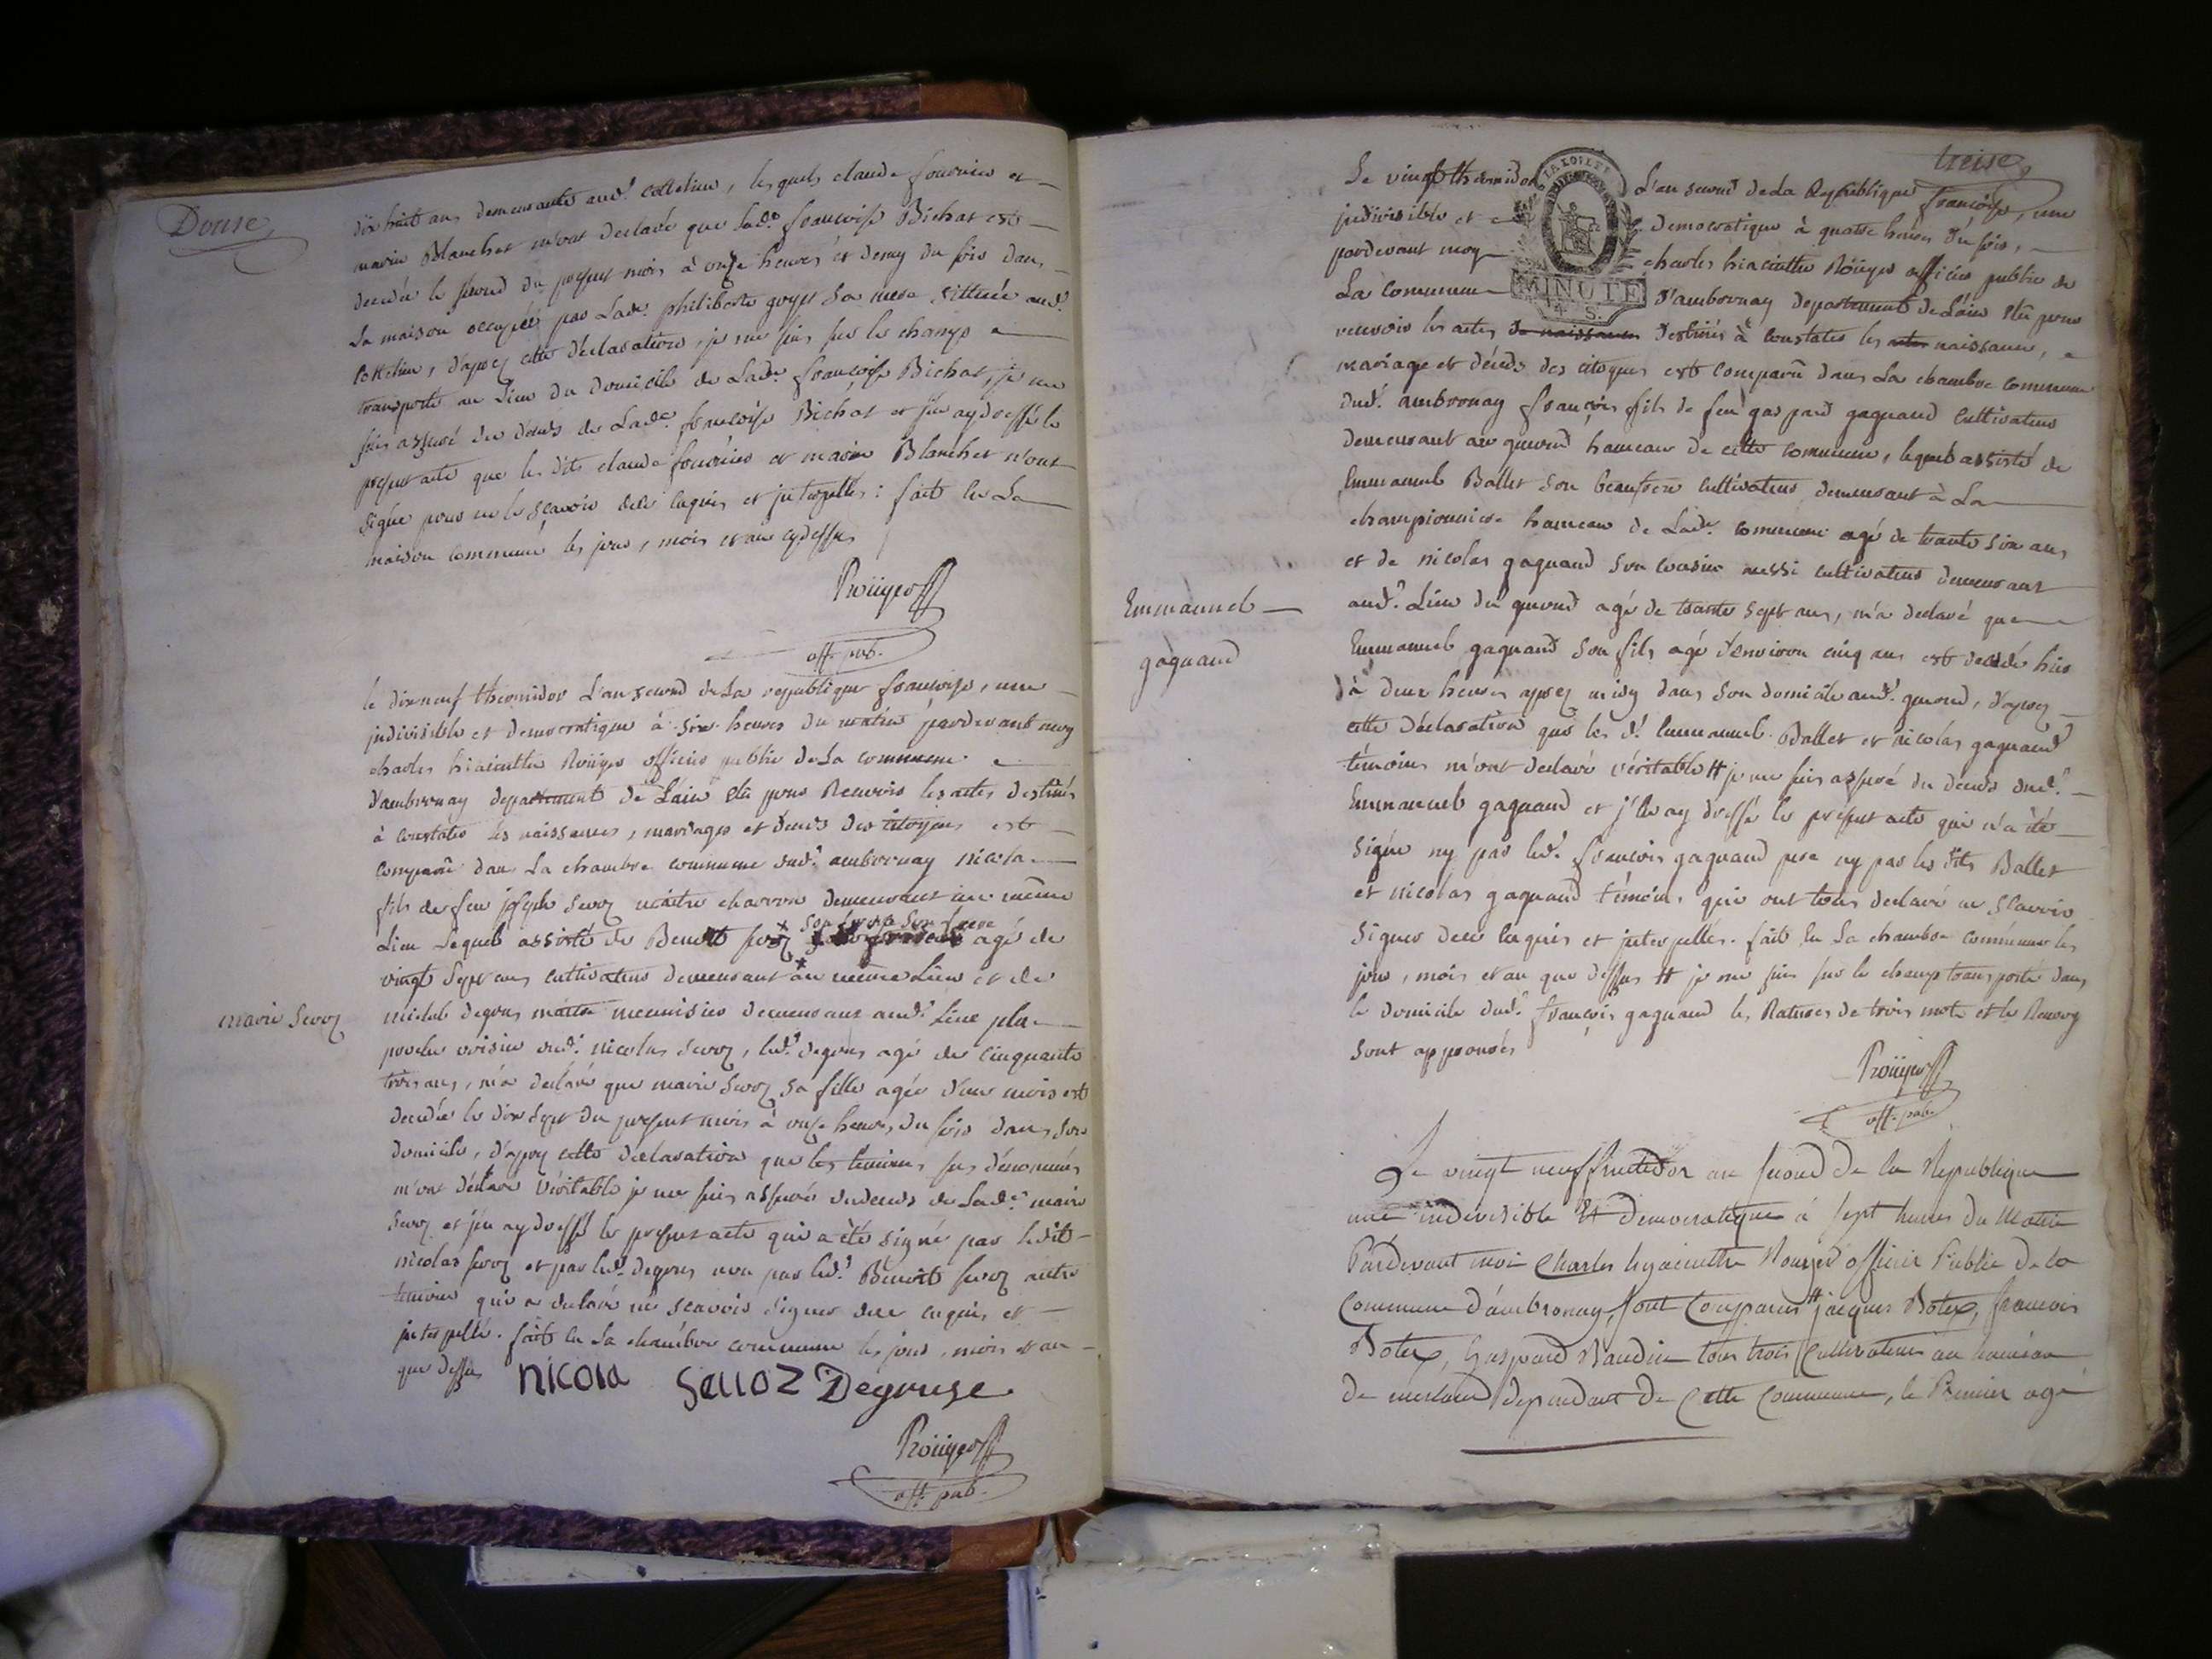 Douse
dix huit ans demeurante aud.t Cottelieu, lesquels claude fournier et
marin Blanchet m'ont declaré que lad.e françoise Bichat est
decedée le second du present mois à onze heures et demy du soir dans
La maison occupée par Lad.e philiberte goyet sa mere sittuée aud.t
Cottelieu, d'après cette déclaration, je me suis sur le champs
transporté au Lieu du Domicile de Lad.e françoise Bichat, je me
suis assuré du décès de Lad.e françoise Bichat et j'en ay dressé le
present acte que les dits claude fournier et marin Blanchet n'ont
signé pour ne le sçavoir de ce enquis et interpellés : fait en La
maison commune les jour, mois et an cydessus
Roüyer
off. pub.
le dixneuf thermidor L'an second de La republique françoise, une
indivisible et democratique à six heures du matin pardevant moy
charles hiacinthe Roüyer officier public de La commune
d'ambronay departement de L'ain élu pour Recevoir les actes destinés
à constater les naissances, mariages et décès des citoyens est
comparu dans La chambre commune dud.t ambronay nicola
fils de feu joseph Servoz maitre charron demeurant au même
Lieu Lequel assisté de Benoît Servoz son frere agé de
vingt sept ans cultivateur demeurant au même Lieu et de
michel degous maitre menuisier demeurant aud.t Lieu plus
proche voisin dud.t nicolas Servoz, led.t degous agé de cinquante
trois ans, m'a declaré que marie Servoz sa fille agée d'un mois est
decedée le dix sept du present mois à onze heures du soir dans son
domicile, d'après cette declaration que les temoins sus dénommés
m'ont déclaré véritable je me suis assuré du décès de Lad.e marie
Servoz et j'en ay dressé le present acte qui a été signé par ledit
nicolas Servoz et par led.t degous non par led.t Benoît Servoz autre
temoin qui a declaré ne scavoir signer de ce enquis et
interpellé. fait en La chambre commune les jour, mois et an
que dessus
marie Servoz
nicola Seuoz Degouse
Roüyer
off. pub.
treise
Le vingt thermidor L'an second de La Republique françoise, une
indivisible et democratique à quatre heures du soir,
pardevant moy charles hiacinthe Roüyer officier public de
La commune d'ambronay departement de L'ain élu pour
MINUTE
4 S.
recevoir les actes de naissances destinés à constater les actes naissances,
mariage et décès des citoyens est comparu dans La chambre commune
dud.t ambronay françois fils de feu gaspard gagnaud cultivateur
demeurant au hameau de cette commune, lequel assisté de
Emmanuel Ballet son beaufrere cultivateur demeurant à La
championiere hameau de Lad.e commune agé de trante six ans
et de nicolas gagnaud son cousin aussi cultivateur demeurant
aud.t Lieu du agé de trante sept ans, m'a declaré que
Emmanuel gagnaud son fils agé d'environ cinq ans est decedé hier
à deux heures après midy dans son domicile aud.t d'après
cette déclaration que les d.t Emmanuel Ballet et nicolas gagnaud
témoins m'ont declaré véritable # je me suis assuré du décès dud.t
Emmanuel gagnaud et j'en ay dressé le present acte qui n'a été
signé ny par led.t françois gagnaud pere ny par les dits Ballet
et nicolas gagnaud témoins qui ont tous declaré ne sçavoir
signer de ce enquis et interpellés. fait en La chambre commune les
jour, mois et an que dessus # je me suis sur le champ transporté dans
le domicile dud.t françois gagnaud les Ratures de trois mots et le Renvoy
sont approuvés
Emmanuel
gagnaud
Roüyer
off. pub.
Le vingt neuf fructidor an second de la Republique
une indivisible et democratique à sept heures du Matin
Pardevant moi Charles hyacinthe Rouyer officier Public de la
Commune d'ambronay, sont Comparus # jacques Botex, francois
Botex, Gaspard Baudin tous trois Cultivateurs au hameau
de dependant de Cette Commune, le Premier agé